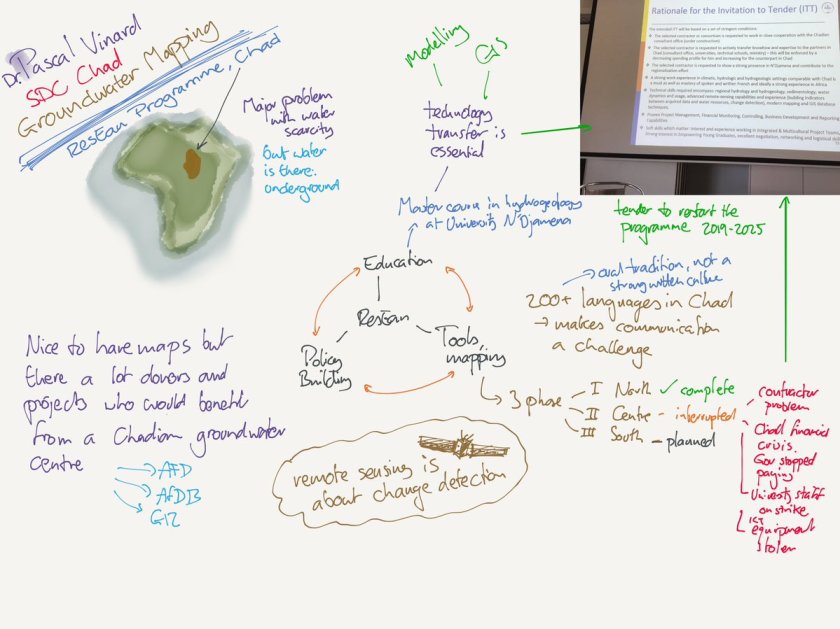 Dr. Pascal Vinard
SDC Chad
Groundwater Mapping
ResEau Programme, Chad
Major problem
with water
scarcity
but water
is there.
underground
modelling
GIS
technology
transfer is
essential
Master course in hydrogeology
at University N'Djamena
Education
ResEau
Policy
Building
Tools,
mapping
Rationale for the Invitation to Tender (ITT)
The extended ITT will be based on a set of stringent conditions.
tender to restart the
programme 2019-2025
oral tradition, not a
strong written culture
200+ languages in Chad
→ makes communication
a challenge
3 phase
I North ✓ complete
II Centre - interrupted
III South - planned
contractor
problem
Chad financial
crisis.
Gov stopped
paying
University staff
on strike
ICT
equipment
stolen
Nice to have maps but
there a lot donors and
projects who would benefit
from a Chadian groundwater
centre
AFD
AfDB
GIZ
remote sensing is
about change detection